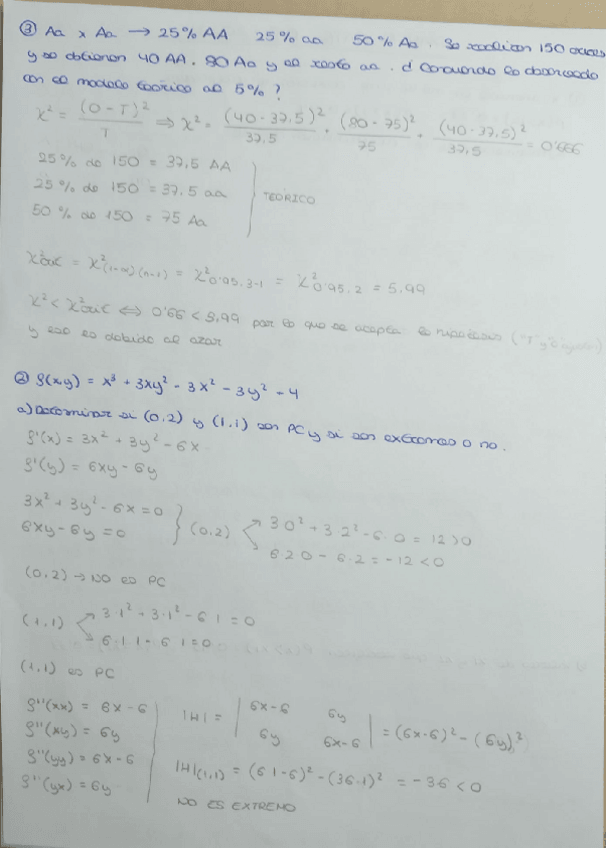 ③ Aa x Aa → 25% AA 25% aa 50% Aa. Se realizan 150 cruces
y se obtienen 40 AA, 80 Aa y el resto aa. ¿ Concuerda lo observado
con el modelo teórico al 5%?
χ² = (O-T)²/T ⇒ χ² = (40-37,5)²/37,5 + (80-75)²/75 + (40-37,5)²/37,5 = 0'666
25% de 150 = 37,5 AA
25% de 150 = 37.5 aa
50% de 150 = 75 Aa
TEÓRICO
= χ²(1-α)(n-1) = χ²0'95, 3-1 = χ²0'95,2 = 5.99
0'66 < 5,99 por lo que se acepta la hipótesis
y eso es debido al azar
② f(xy) = x³ + 3xy² - 3x² - 3y² + 4
a) Determinar si (0,2) y (1,1) son PC y si son extremos o no.
f'(x) = 3x² + 3y² - 6x
f'(y) = 6xy - 6y
3x² + 3y² - 6x = 0
6xy - 6y = 0
} (0,2)
3·0² + 3·2² - 6·0 = 12 > 0
6·2·0 - 6·2 = -12 < 0
(0,2) → NO es PC
(1,1)
3·1² + 3·1² - 6·1 = 0
6·1·1 - 6·1 = 0
(1,1) es PC
f''(xx) = 6x - 6
f''(xy) = 6y
f''(yy) = 6x - 6
f''(yx) = 6y
|H| = | 6x-6 6y |
| 6y 6x-6 | = (6x-6)² - (6y)²
|H|(1,1) = (6·1-6)² - (36·1)² = -36 < 0
NO ES EXTREMO